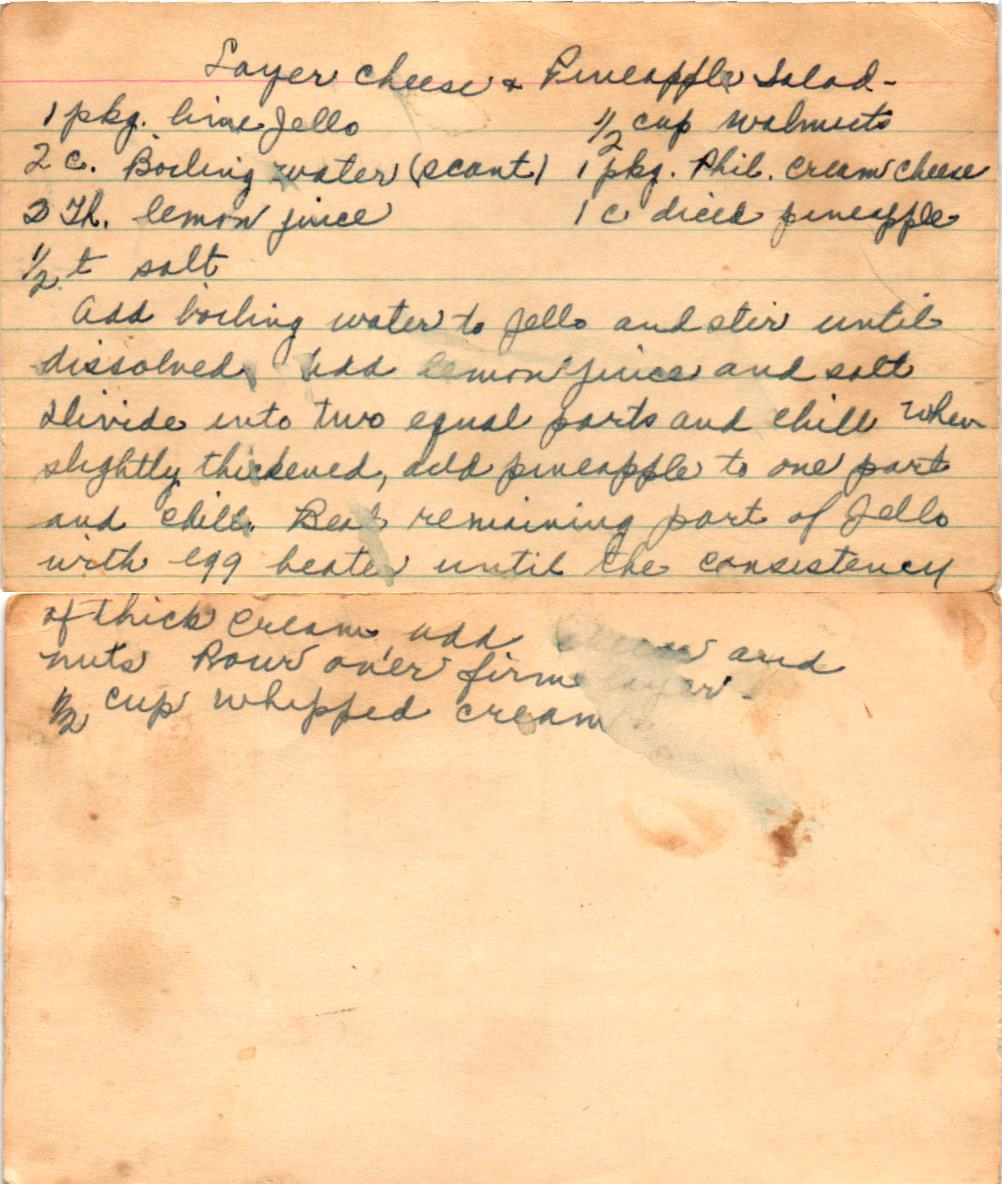 Layer Cheese & Pineapple Salad-
1 pkg. lime Jello
½ cup walnuts
2 c. Boiling water (scant)
1 pkg. Phil. Cream Cheese
2 Tb. lemon juice
1 c diced pineapple
½ t salt
Add boiling water to Jello and stir until
dissolved, Add lemon juice and salt
Divide into two equal parts and chill When
slightly thickened, add pineapple to one part
and chill. Beat remaining part of Jello
with egg beater until the consistency
of thick cream, add cheese and
nuts Pour over firm layer-
½ cup whipped cream